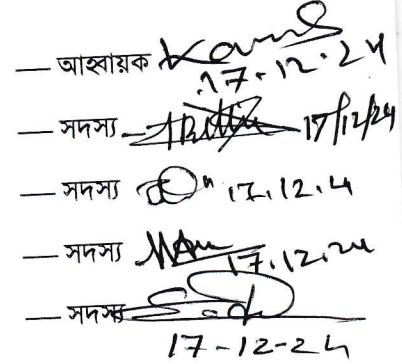 — আহ্বায়ক
17.12.24
— সদস্য 17/12/24
— সদস্য 17.12.4
— সদস্য 17.12.24
— সদস্য
17-12-24